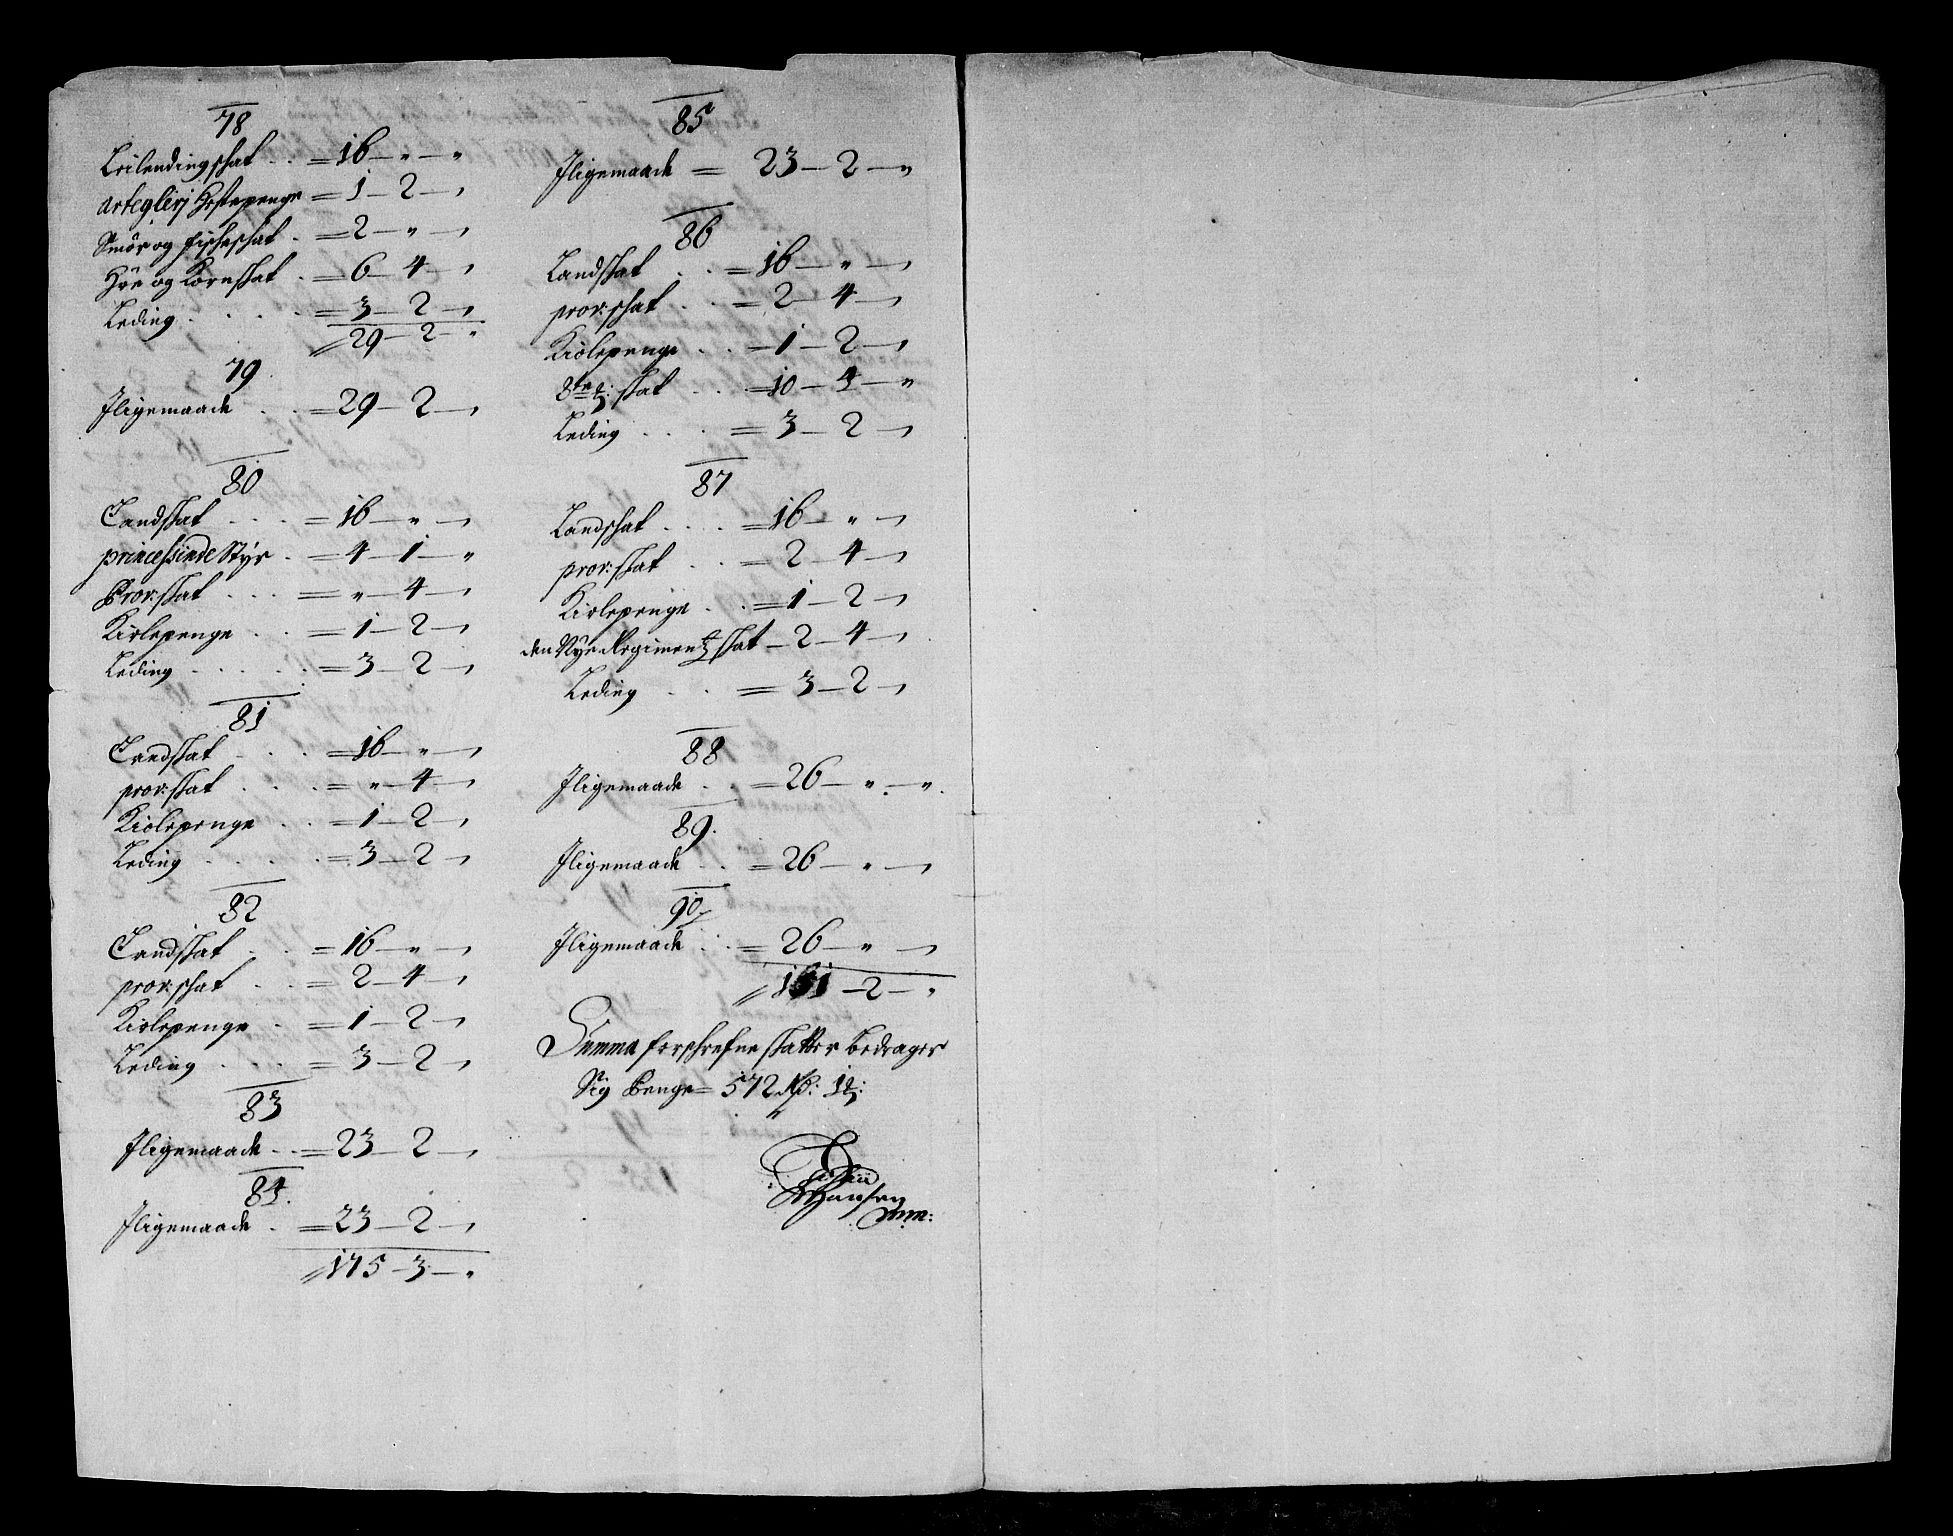 78
Leilendingschat . . = 16 — „ — „
artegleri Hestepenge = 1 — 2 —,
Smör og fischeschat . = 2 — „ —,
Höe og Kornskat . = 6 — 4 —,
Leding . . . . = 3 — 2 —,
29 — 2 — „
79
Jligemaade . . = 29 — 2 —,
80
Landskat . . . = 16 — „ —,
princessinde Styr . = 4 — 1 — „
Prov: skat . . . = „ — 4 —,
Kiolepenge . . = 1 — 2 —,
Leding . . . . = 3 — 2 —,
81
Landskat . . . = 16 — „ —,
prov: skat . . . = „ — 4 —,
Kiolepenge . . = 1 — 2 —,
Leding . . . . = 3 — 2 —,
82
Landskat . . = 16 — „ —,
prov: schat . . = 2 — 4 —,
Kiolepenge . = 1 — 2 —,
Leding . . . = 3 — 2 —,
83
Jligemaade . . = 23 — 2 —,
84.
Jligemaade . = 23 — 2 —,
175 — 3 — „
85
Jligemaade = 23 — 2 — „
86
Landskat . . = 16 — „ —,
prov: schat . . = 2 — 4 —,
Kiolepenge . . = 1 — 2 —,
skat . . = 10 — 4 — „
Leding . . . = 3 — 2 —,
87
Landschat . . . = 16 — „ —,
prov: skat . . = 2 — 4 —,
Kiolepenge . . = 1 — 2 —,
den Nye Regimentz skat — 2 — 4 —,
Leding . . = 3 — 2 —,
88
Jligemaade . . = 26 — „ — „.
89.
Jligemaade . . = 26 — „ —,
90
Jligemaade . . = 26 — „ —,
161 — 2 — „
Summa forschrefne skatter bedrager
Sig Penge = 572 Rd: 1
Hansen
mm: